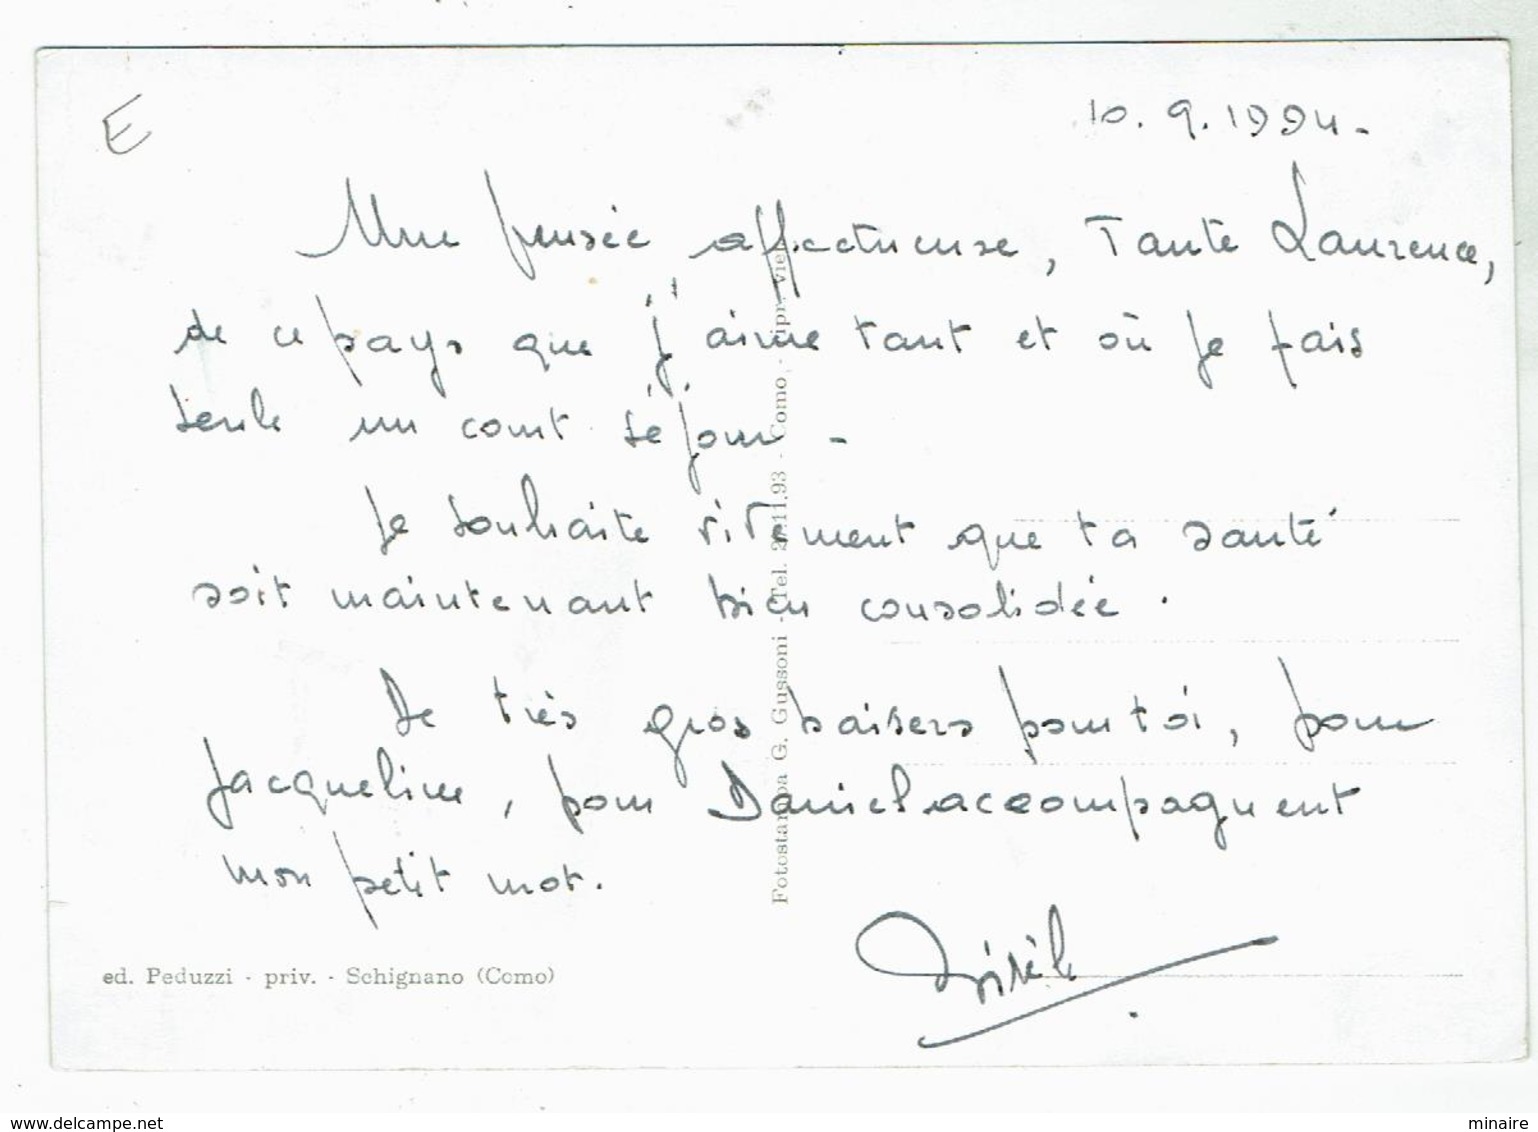 E
10.9.1994-
Une pensée affectueuse, Tante Laurence,
de ce pays que j'aime tant et où je fais
seule un court séjour -
Je souhaite vivement que ta santé
soit maintenant bien consolidée.
De très gros baisers pour toi, pour
Jacqueline, pour Daniel accompagnent
mon petit mot.
Gisèle
ed. Peduzzi - priv. - Schignano (Como)
www.delcampe.net
minaire